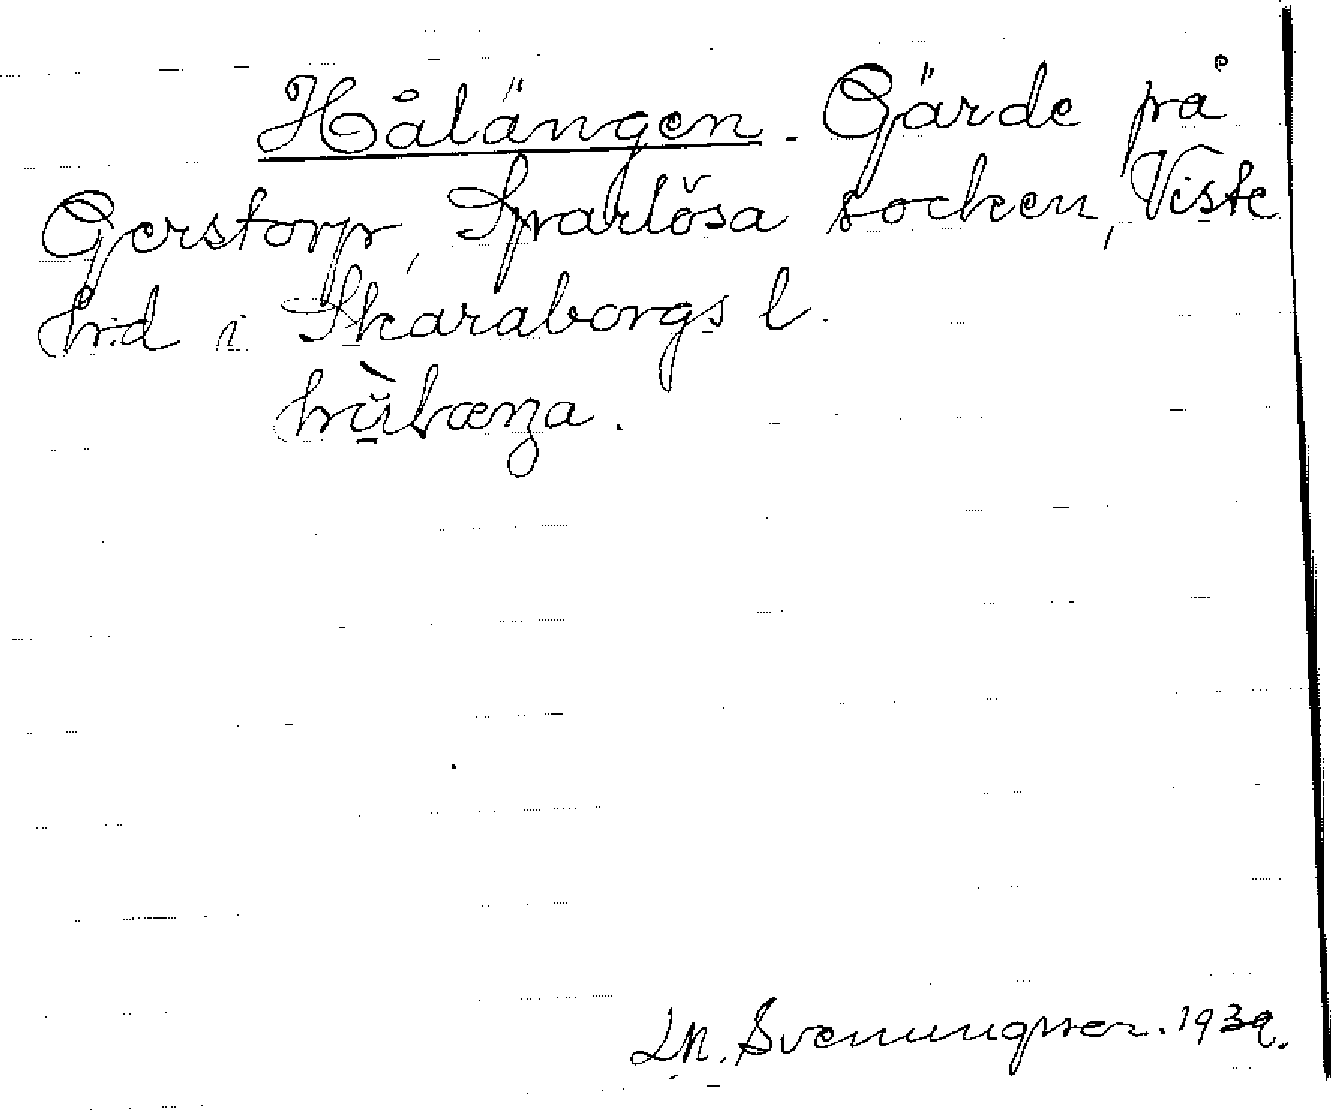 Hålängen. Gärde på
Gerstorp, Sparlösa socken, Viste
hrd i Skaraborgs l.
Svenungsson. 1939.